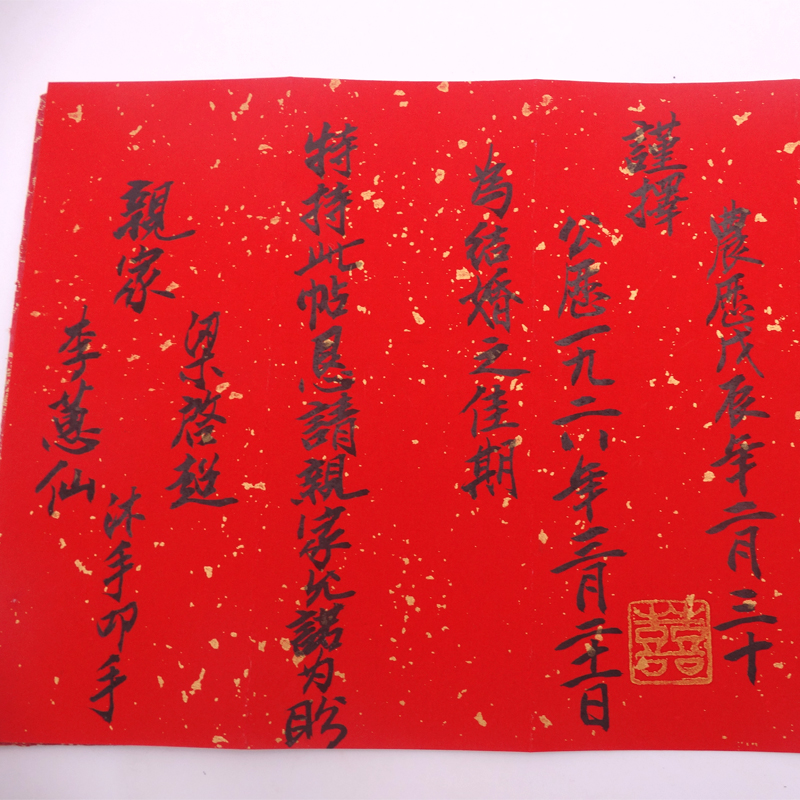 謹擇
農歷戊辰年二月三十
公歷一九二八年三月二十一日
為结婚之佳期
特持此帖恳請親家允諾为盼
親家
梁啓超
李蕙仙
沐手叩手
囍